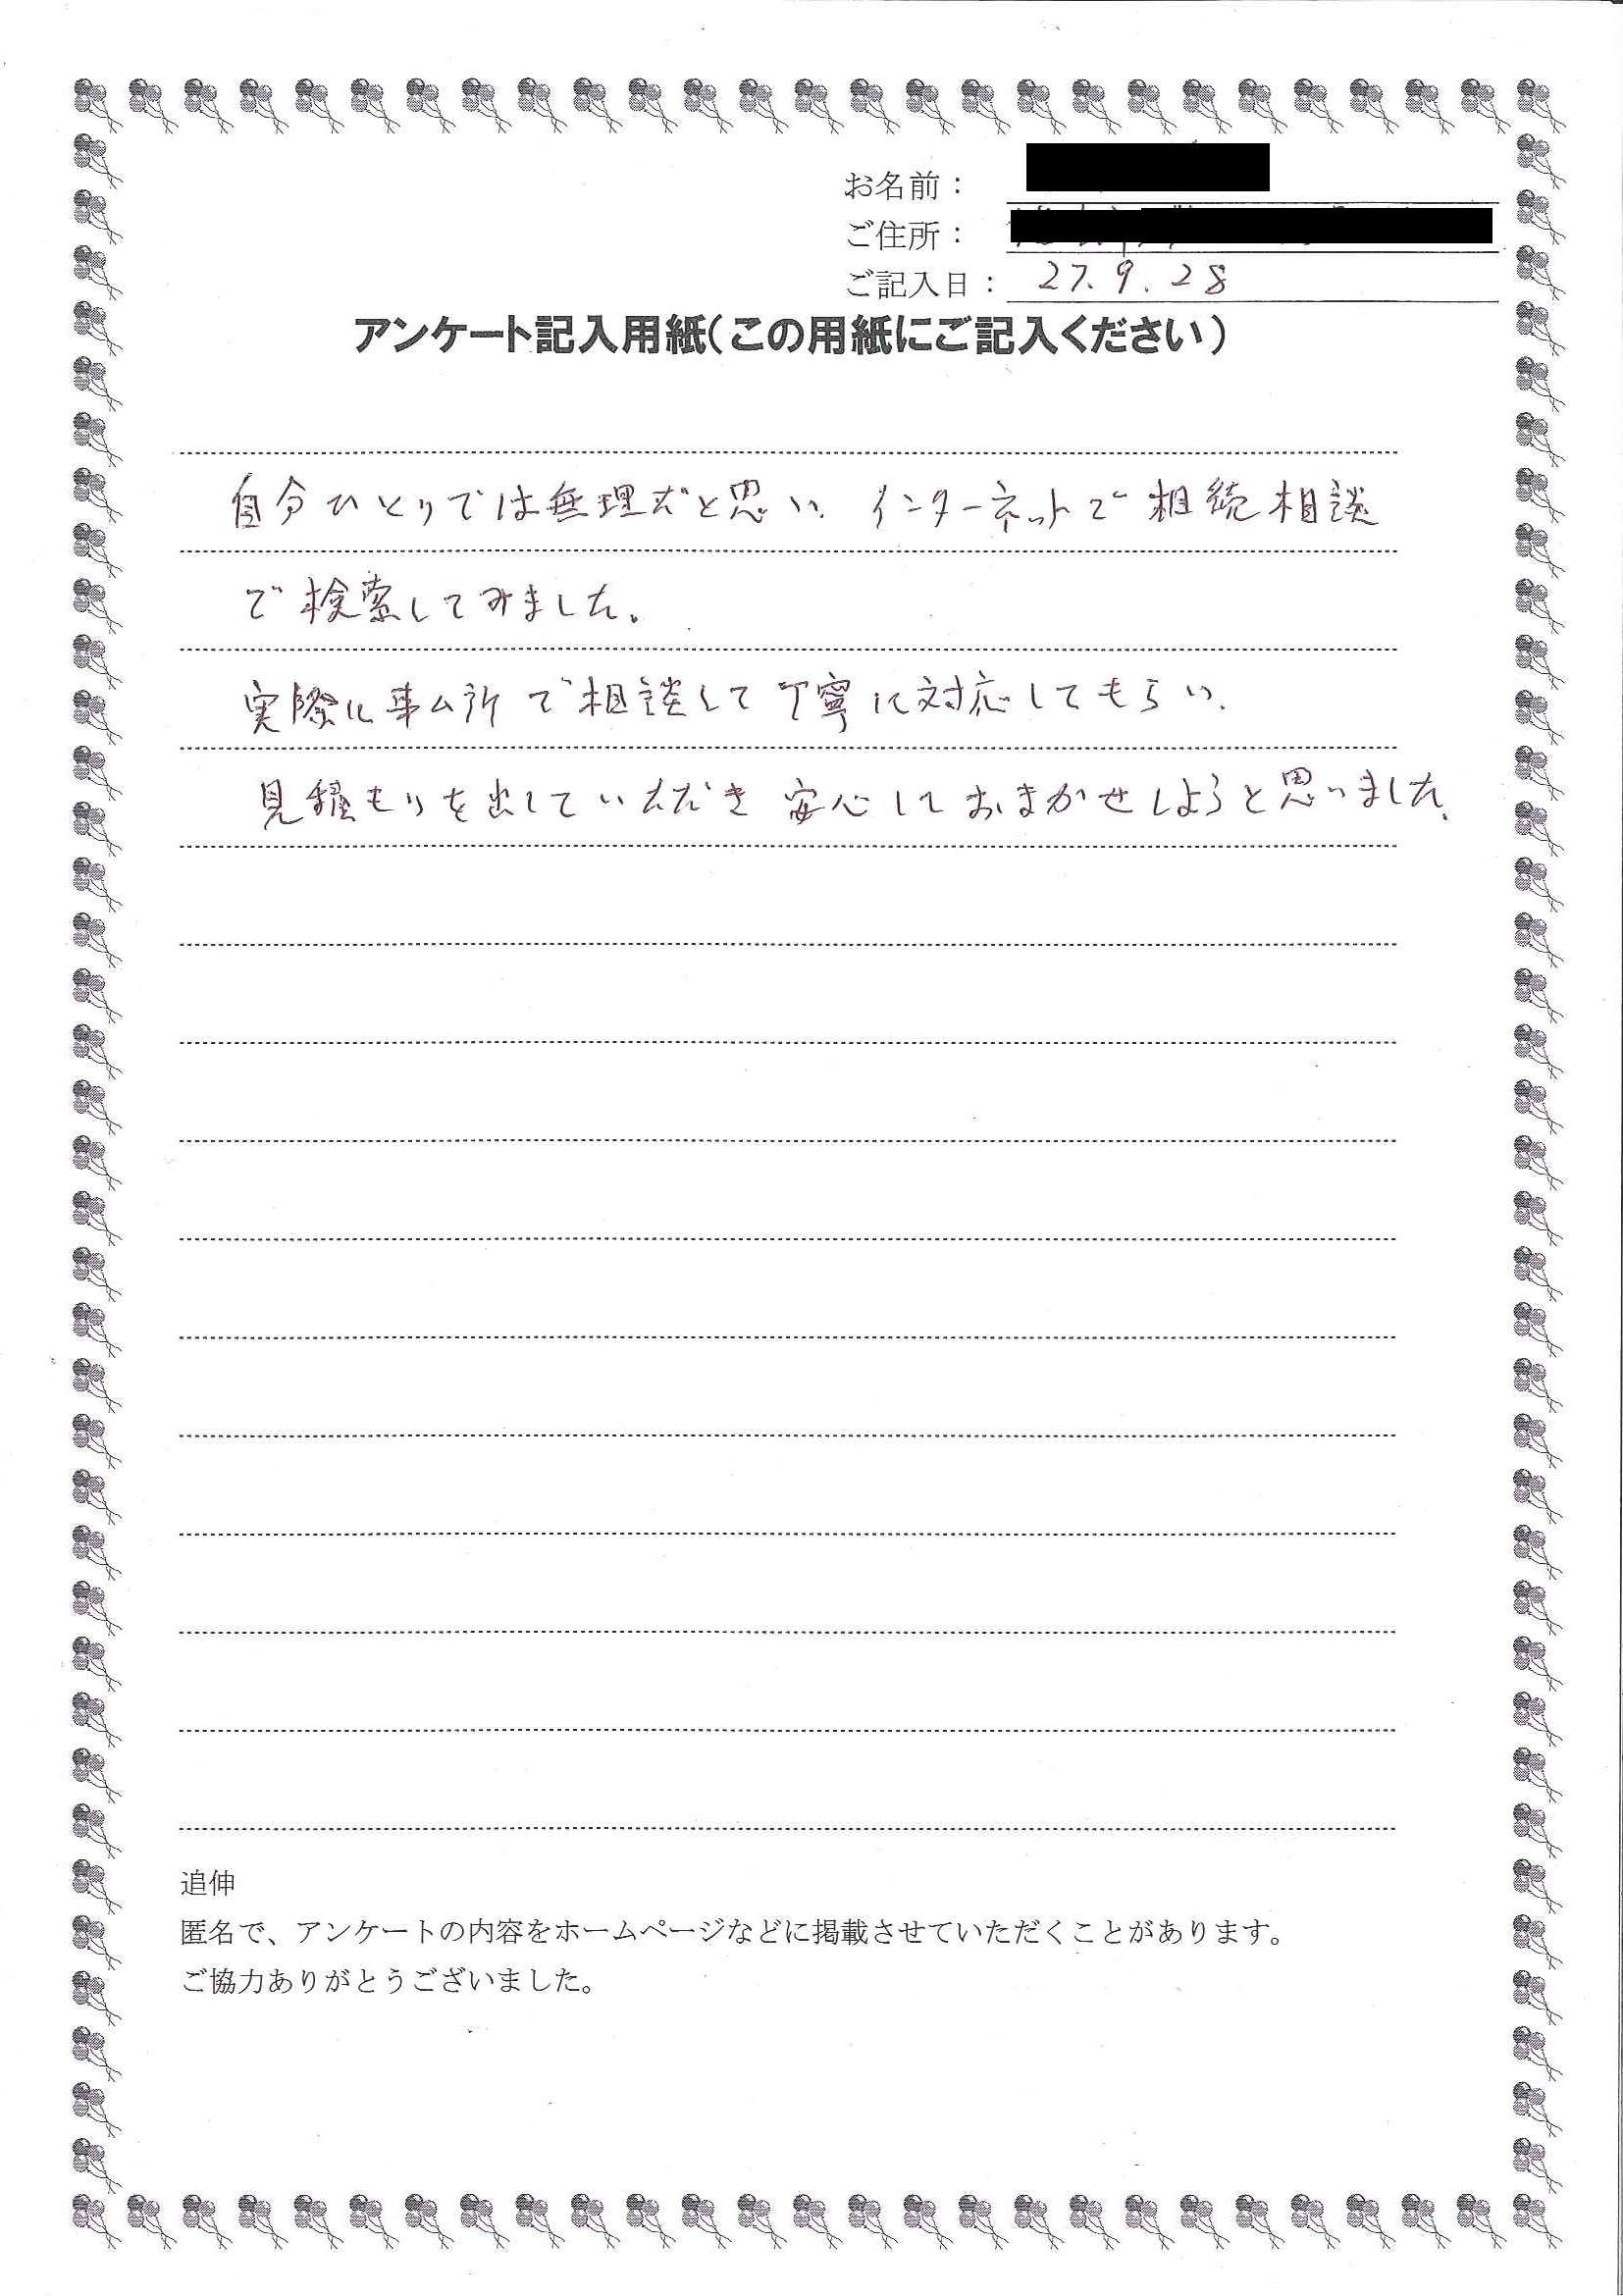 お名前：
ご住所：
ご記入日： 27.9.28
アンケート記入用紙（この用紙にご記入ください）
自分ひとりでは無理だと思い、インターネットで相続相談
で検索してみました。
実際に事ム所で相談して丁寧に対応してもらい、
見積もりを出していただき安心しておまかせしようと思いました。
追伸
匿名で、アンケートの内容をホームページなどに掲載させていただくことがあります。
ご協力ありがとうございました。